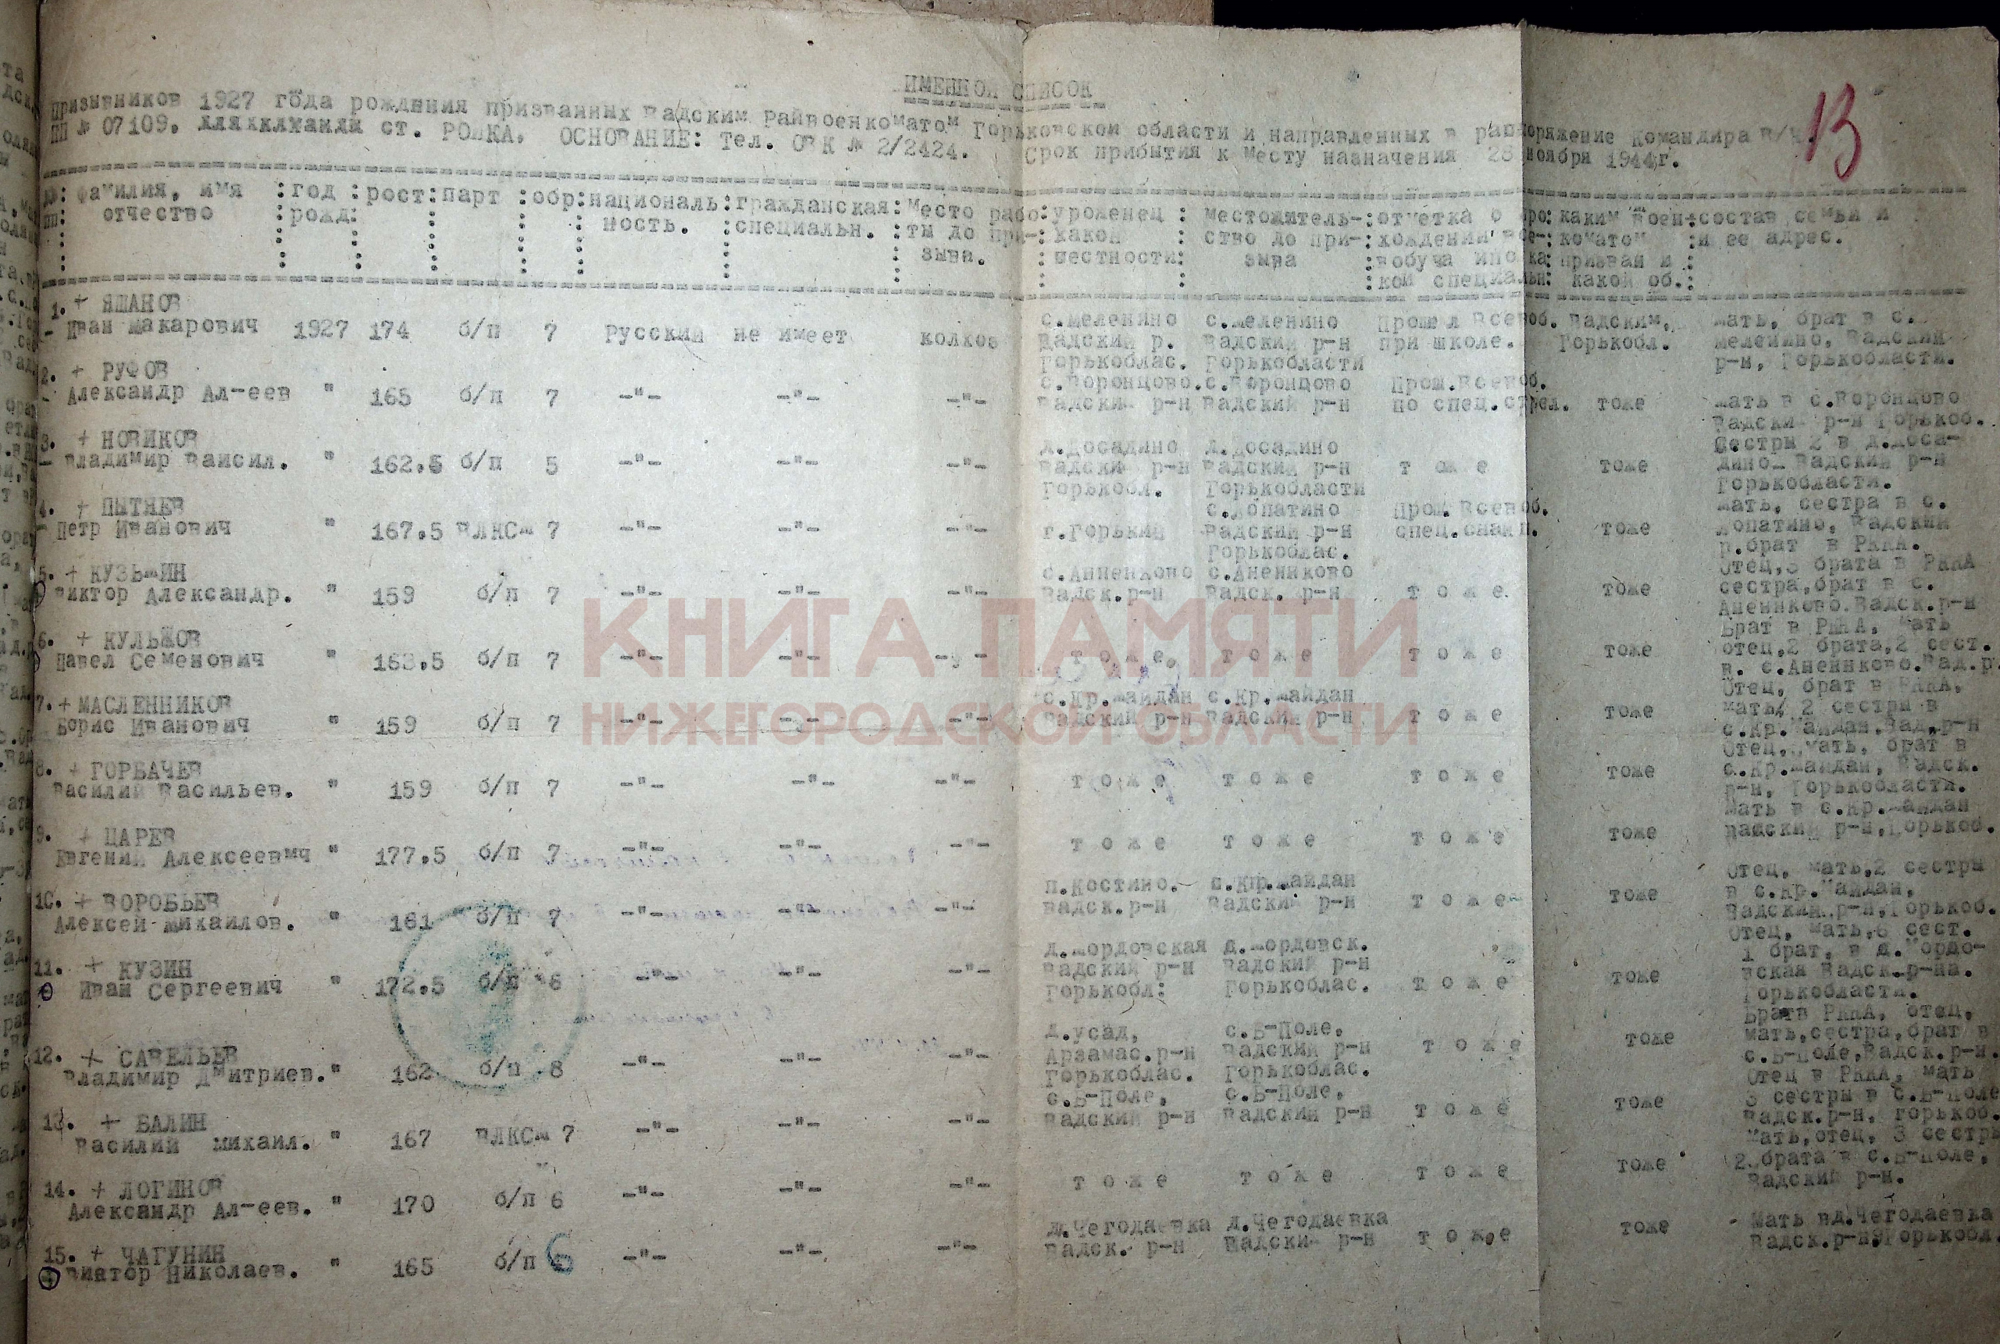 ИМЕННОЙ СПИСОК
призывников 1927 года рождения призванных Вадским Райвоенкоматом Горьковской области и направленных в распоряжение Командира В/Ч
ПП № 07109. ст. РОЙКА. ОСНОВАНИЕ: Тел. ОВК № 2/2424. Срок прибытия к месту назначения 28 ноября 1944г.
13
№№: фамилия, имя :год :рост:парт :обр:националь:гражданская:Место рабо:уроженец : местожитель-:отметка о про:каким воен-:состав семьи и
пп: отчество :рожд: ность. :специальн. :ты до при-:какой : ство до при-:хождении все-:коматом :и ее адрес.
зыва. :местности: зыва :вобуча и по ка:призван и
кой специальн: какой об.:
1. + ЯШАНОВ
Иван Макарович 1927 174 б/п 7 Русский не имеет колхоз с.Меленино с.Меленино Прошел Всевоб. Вадским, мать, брат в с.
Вадский р. Вадский р-н при школе. Горькобл. Меленино, Вадский
Горькоблас. Горькобласти р-н, Горькобласти.
2. + РУФОВ
Александр Ал-еев " 165 б/п 7 -"- -"- -"- с.Воронцово. с.Воронцово Прош.Всевоб.
Вадский р-н Вадский р-н по спец.стрел. тоже мать в с.Воронцово
Вадский р-н Горькоб.
3. + НОВИКОВ
Владимир Ваисил. " 162,5 б/п 5 -"- -"- -"- д.Досадино д.Досадино Сестры 2 в д.Доса-
Вадский р-н Вадский р-н т о ж е тоже дино- Вадский р-н
Горькобл. Горькобласти Горькобласти.
4. + ПЫТЯЕВ
Петр Иванович " 167,5 ВЛКСМ 7 -"- -"- -"- с.Лопатино Прош.Всевоб. мать, сестра в с.
г.Горький Вадский р-н спец.снайп. тоже Лопатино, Вадский
Горькоблас. р.брат в РККА.
5. + КУЗЬМИН
Виктор Александр. " 159 б/п 7 -"- -"- -"- с.Анненково с.Аненково Отец,3 брата в РККА
Вадск.р-н Вадск. р-н т о ж е тоже сестра,брат в с.
Аненково.Вадск.р-н
6. + КУЛЬЖОВ
Павел Семенович " 163,5 б/п 7 -"- -"- -"- т о ж е т о ж е т о ж е тоже Брат в РККА, мать
отец,2 брата,2 сест.
в. с.Аненково.Вад.р.
7. + МАСЛЕННИКОВ
Борис Иванович " 159 б/п 7 -"- -"- -"- с.Кр.Майдан с.Кр.Майдан Отец, брат в РККА,
Вадский р-н Вадский р-н т о ж е тоже мать, 2 сестры в
с.Кр.Майдан.Вад,р-н
8. + ГОРБАЧЕВ
Василий Васильев. " 159 б/п 7 -"- -"- -"- т о ж е т о ж е т о ж е тоже Отец, мать, брат в
с.Кр.Майдан, Вадск.
р-н, Горькобласти.
9. + ЦАРЕВ
Евгений Алексеевич " 177,5 б/п 7 -"- -"- -"- т о ж е т о ж е т о ж е тоже Мать в с.Кр.Майдан
Вадский р-н,Горькоб.
10. + ВОРОБЬЕВ
Алексей Михайлов. " 161 б/п 7 -"- -"- -"- п.Костино. с.Кр.Майдан Отец, мать,2 сестры
Вадск.р-н Вадский р-н т о ж е тоже в с.Кр.Майдан,
Вадский р-н,Горькоб.
11. + КУЗИН
Иван Сергеевич " 172,5 б/п 6 -"- -"- -"- д.Мордовская д.Мордовск. Отец, мать,6 сест.
Вадский р-н Вадский р-н 1 брат, в д. Мордо-
Горькобл: Горькоблас. т о ж е тоже вская Вадск.р-на.
Горькобласти.
12. + САВЕЛЬЕВ
Владимир Дмитриев." 162 б/п 8 -"- -"- -"- д.Усад, с.Б-Поле, Братв РККА, отец,
Арзамас.р-н Вадский р-н т о ж е тоже мать,сестра,брат в
Горькоблас. Горькоблас. с.Б-Поле,Вадск.р-н.
13. + БАЛИН
Василий Михаил. " 167 ВЛКСМ 7 -"- -"- -"- с.Б-Поле, с.Б-Поле, Отец в РККА, мать
Вадский р-н Вадский р-н т о ж е тоже 3 сестры в с.Б-Поле
Вадск.р-н, Горькоб.
14. + ЛОГИНОВ
Александр Ал-еев. " 170 б/п 6 -"- -"- -"- т о ж е т о ж е т о ж е тоже Мать,отец, 3 сестры
2 брата в с.Б-Поле,
Вадский р-н.
15. + ЧАГУНИН
Виатор Николаев. " 165 б/п 6 -"- -"- -"- д.Чегодаевка д.Чегодаевка Мать вд.Чегодаевка
Вадск. р-н Вадский р-н т о ж е тоже Вадск.р-н,Горькобл.
КНИГА ПАМЯТИ
НИЖЕГОРОДСКОЙ ОБЛАСТИ